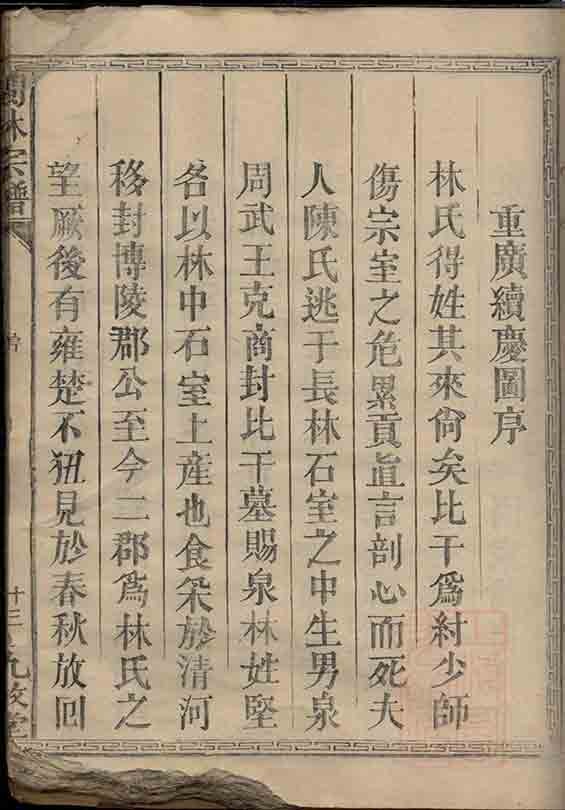 重廣續慶圖序
林氏得姓其來尙矣比干爲紂少師
傷宗室之危累貢眞言剖心而死夫
人陳氏逃于長林石室之中生男泉
周武王克商封比干墓賜泉林姓堅
各以林中石室土產也食采於清河
移封博陵郡公至今二郡爲林氏之
望厥後有雍楚不狃見於春秋放回
林宗譜
十三